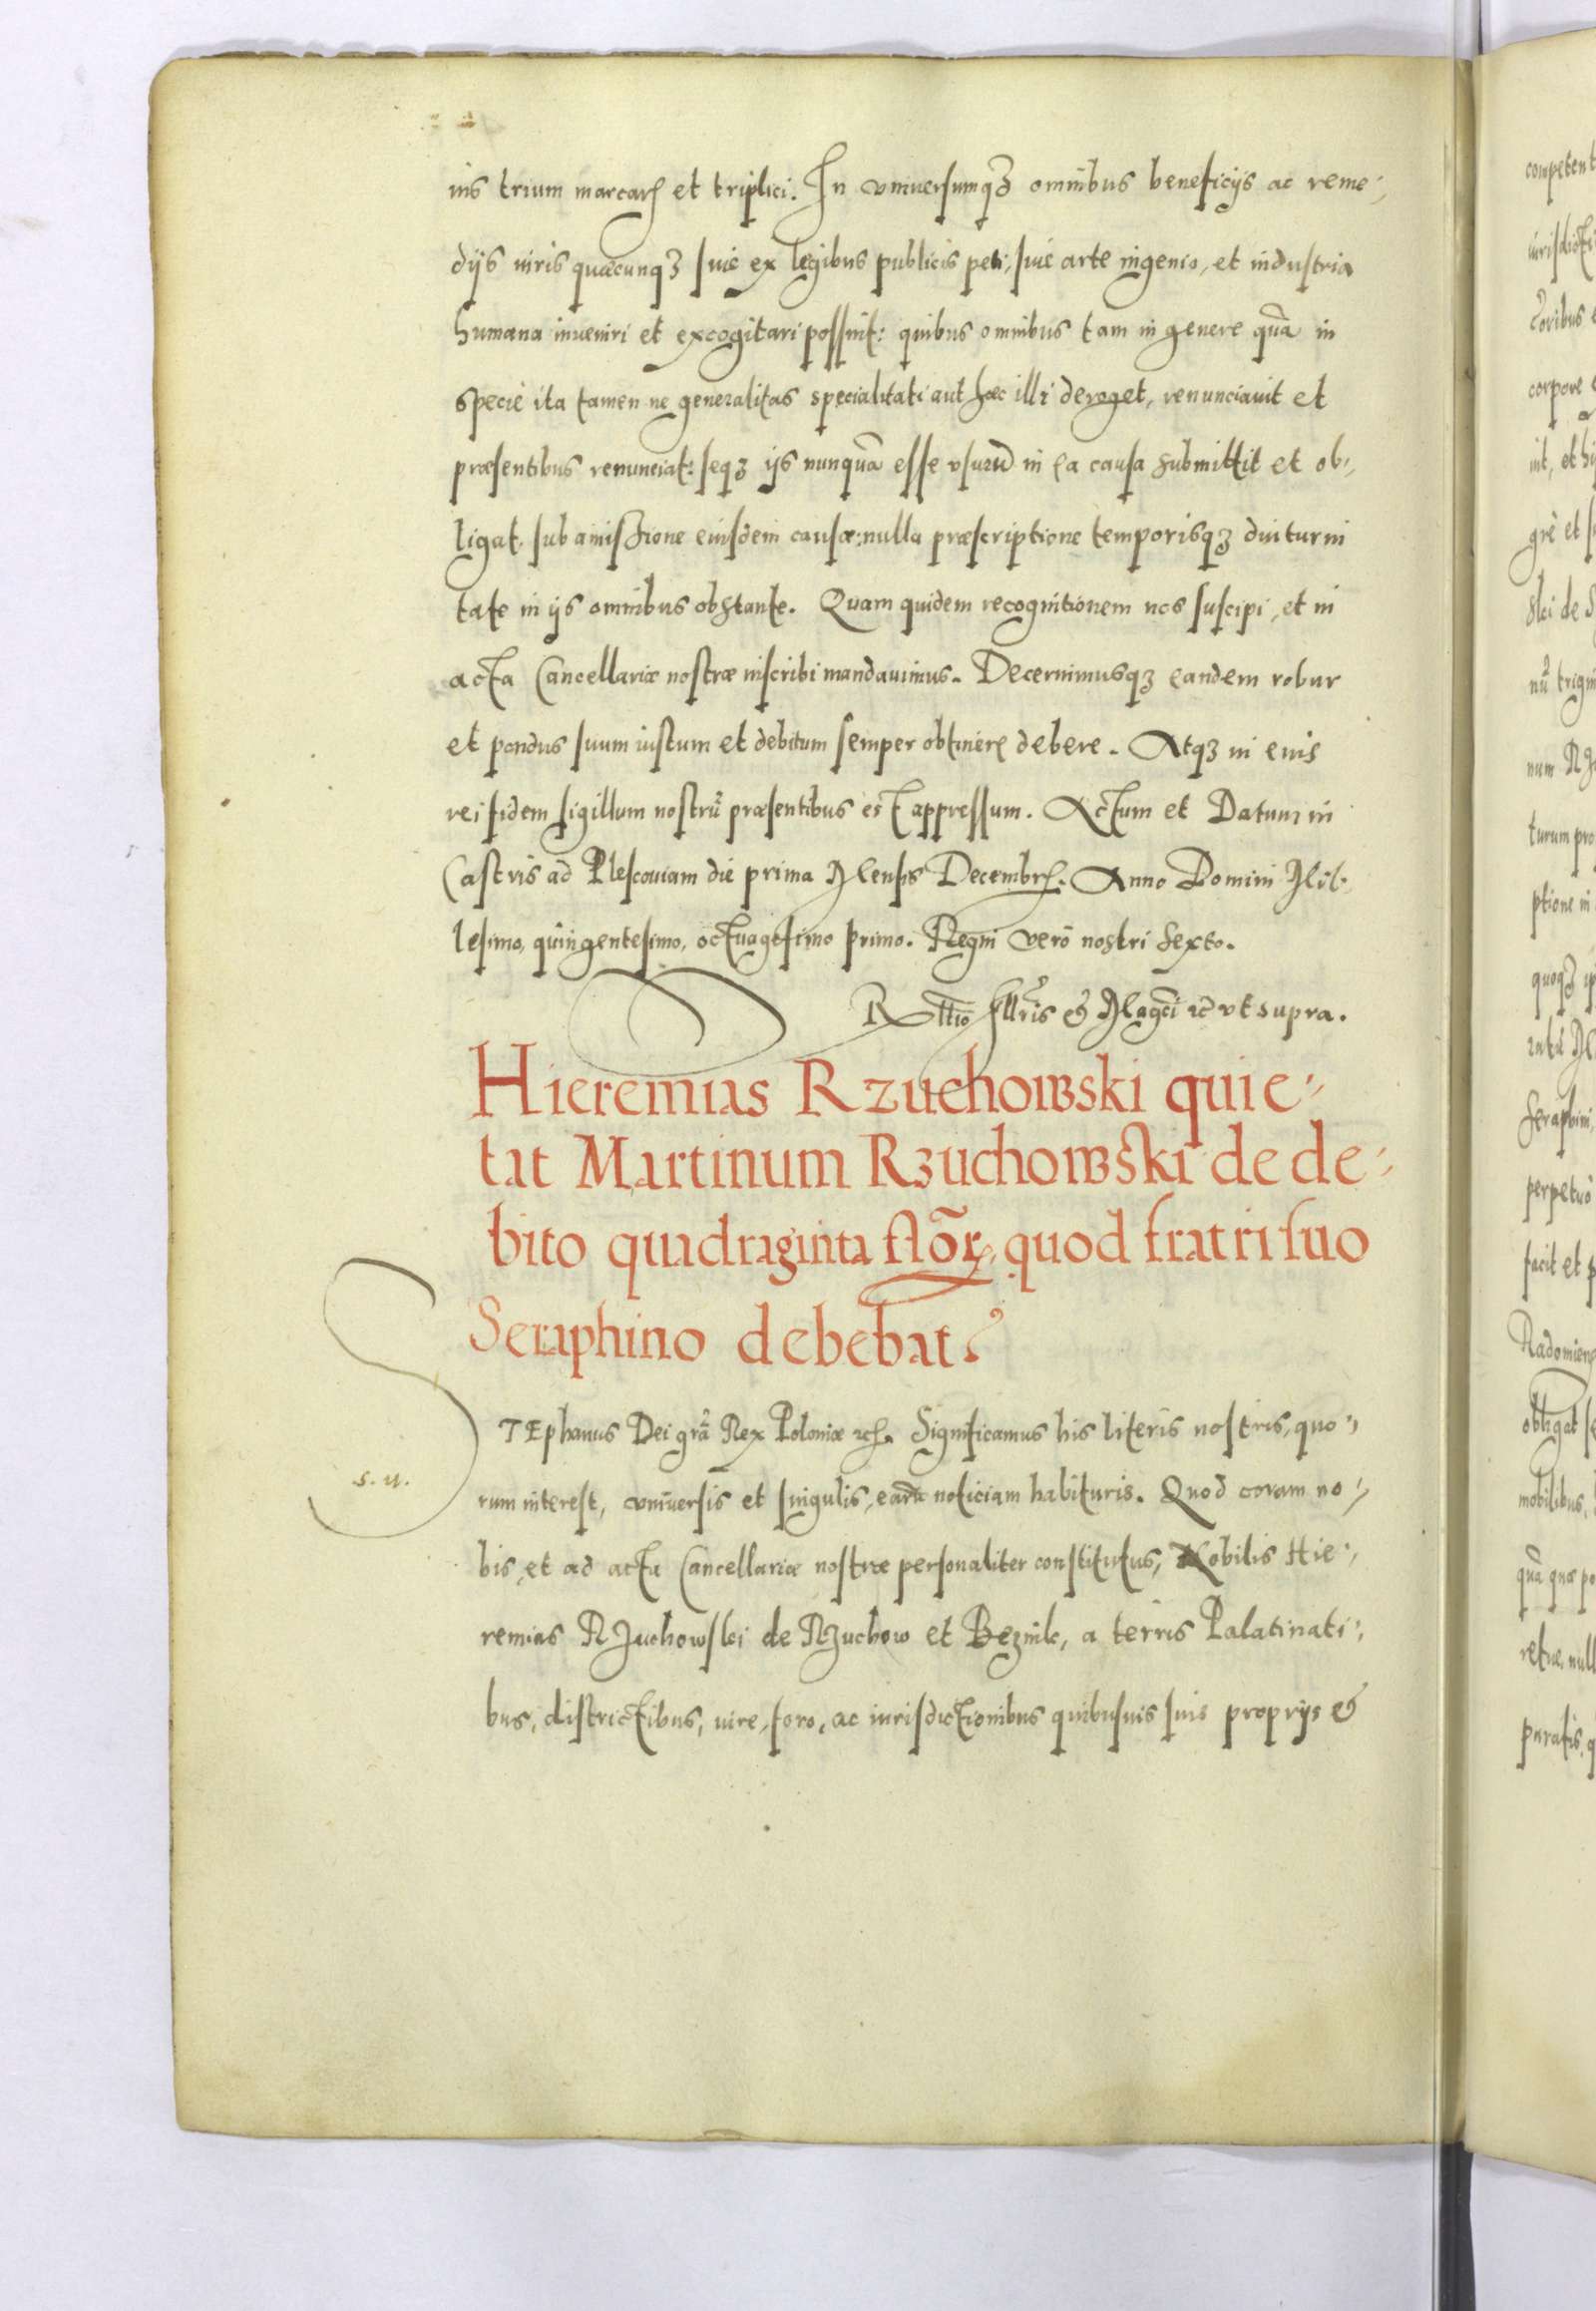 uis trium marcarꝭ et triplici. In vniuersumqꝫ omnibus beneficijs ac reme,
dijs iuris quæcunqꝫ siue ex legibus publicis peti, siue arte ingenio, et industria
humana inueniri et excogitari possint: quibus omnibus tam in genere quã in
specie ita tamen ne generalitas specialitati aut hæc illi deroget, renunciauit et
præsentibus renunciat: seqꝫ ijs nunquã esse vsurũ in ea causa submittit et ob,
ligat, sub amissione eiusdem causæ: nulla præscriptione temporisqꝫ diuturni
tate in ijs omnibus obstante. Quam quidem recognitionem nos suscipi, et in
acta Cancellariæ nostræ inscribi mandauimus. Decernimusqꝫ eandem robur
et pondus suum iustum et debitum semper obtinerꝭ debere. Atqꝫ in eius
rei fidem sigillum nostrũ præsentibus est appressum. Actum et Datum in
Castris ad Plescouiam die prima Mensis Decembrꝭ. Anno Domini Mil,
lesimo, quingentesimo, octuagesimo primo. Regni verò nostri sexto.
Rttio Illris & Magci ꝛc vt supra.
Hieremias Rzuchowski quie,
tat Martinum Rzuchowski de de,
bito quadraginta flõrꝭ, quod fratri suo
Seraphino debebat.
STEphanus Dei grã Rex Poloniæ ꝛcꝭ. Significamus his literis nostris, quo,
s. u.
rum interest, vniuersis et singulis, earũ noticiam habituris. Quod coram no,
bis, et ad acta Cancellariæ nostræ personaliter constitutus, Nobilis Hie,
remias Rzuchowski de Rzuchow et Beznik, a terris Palatinati,
bus, districtibus, iure, foro, ac iurisdictionibus quibusuis suis proprijs &